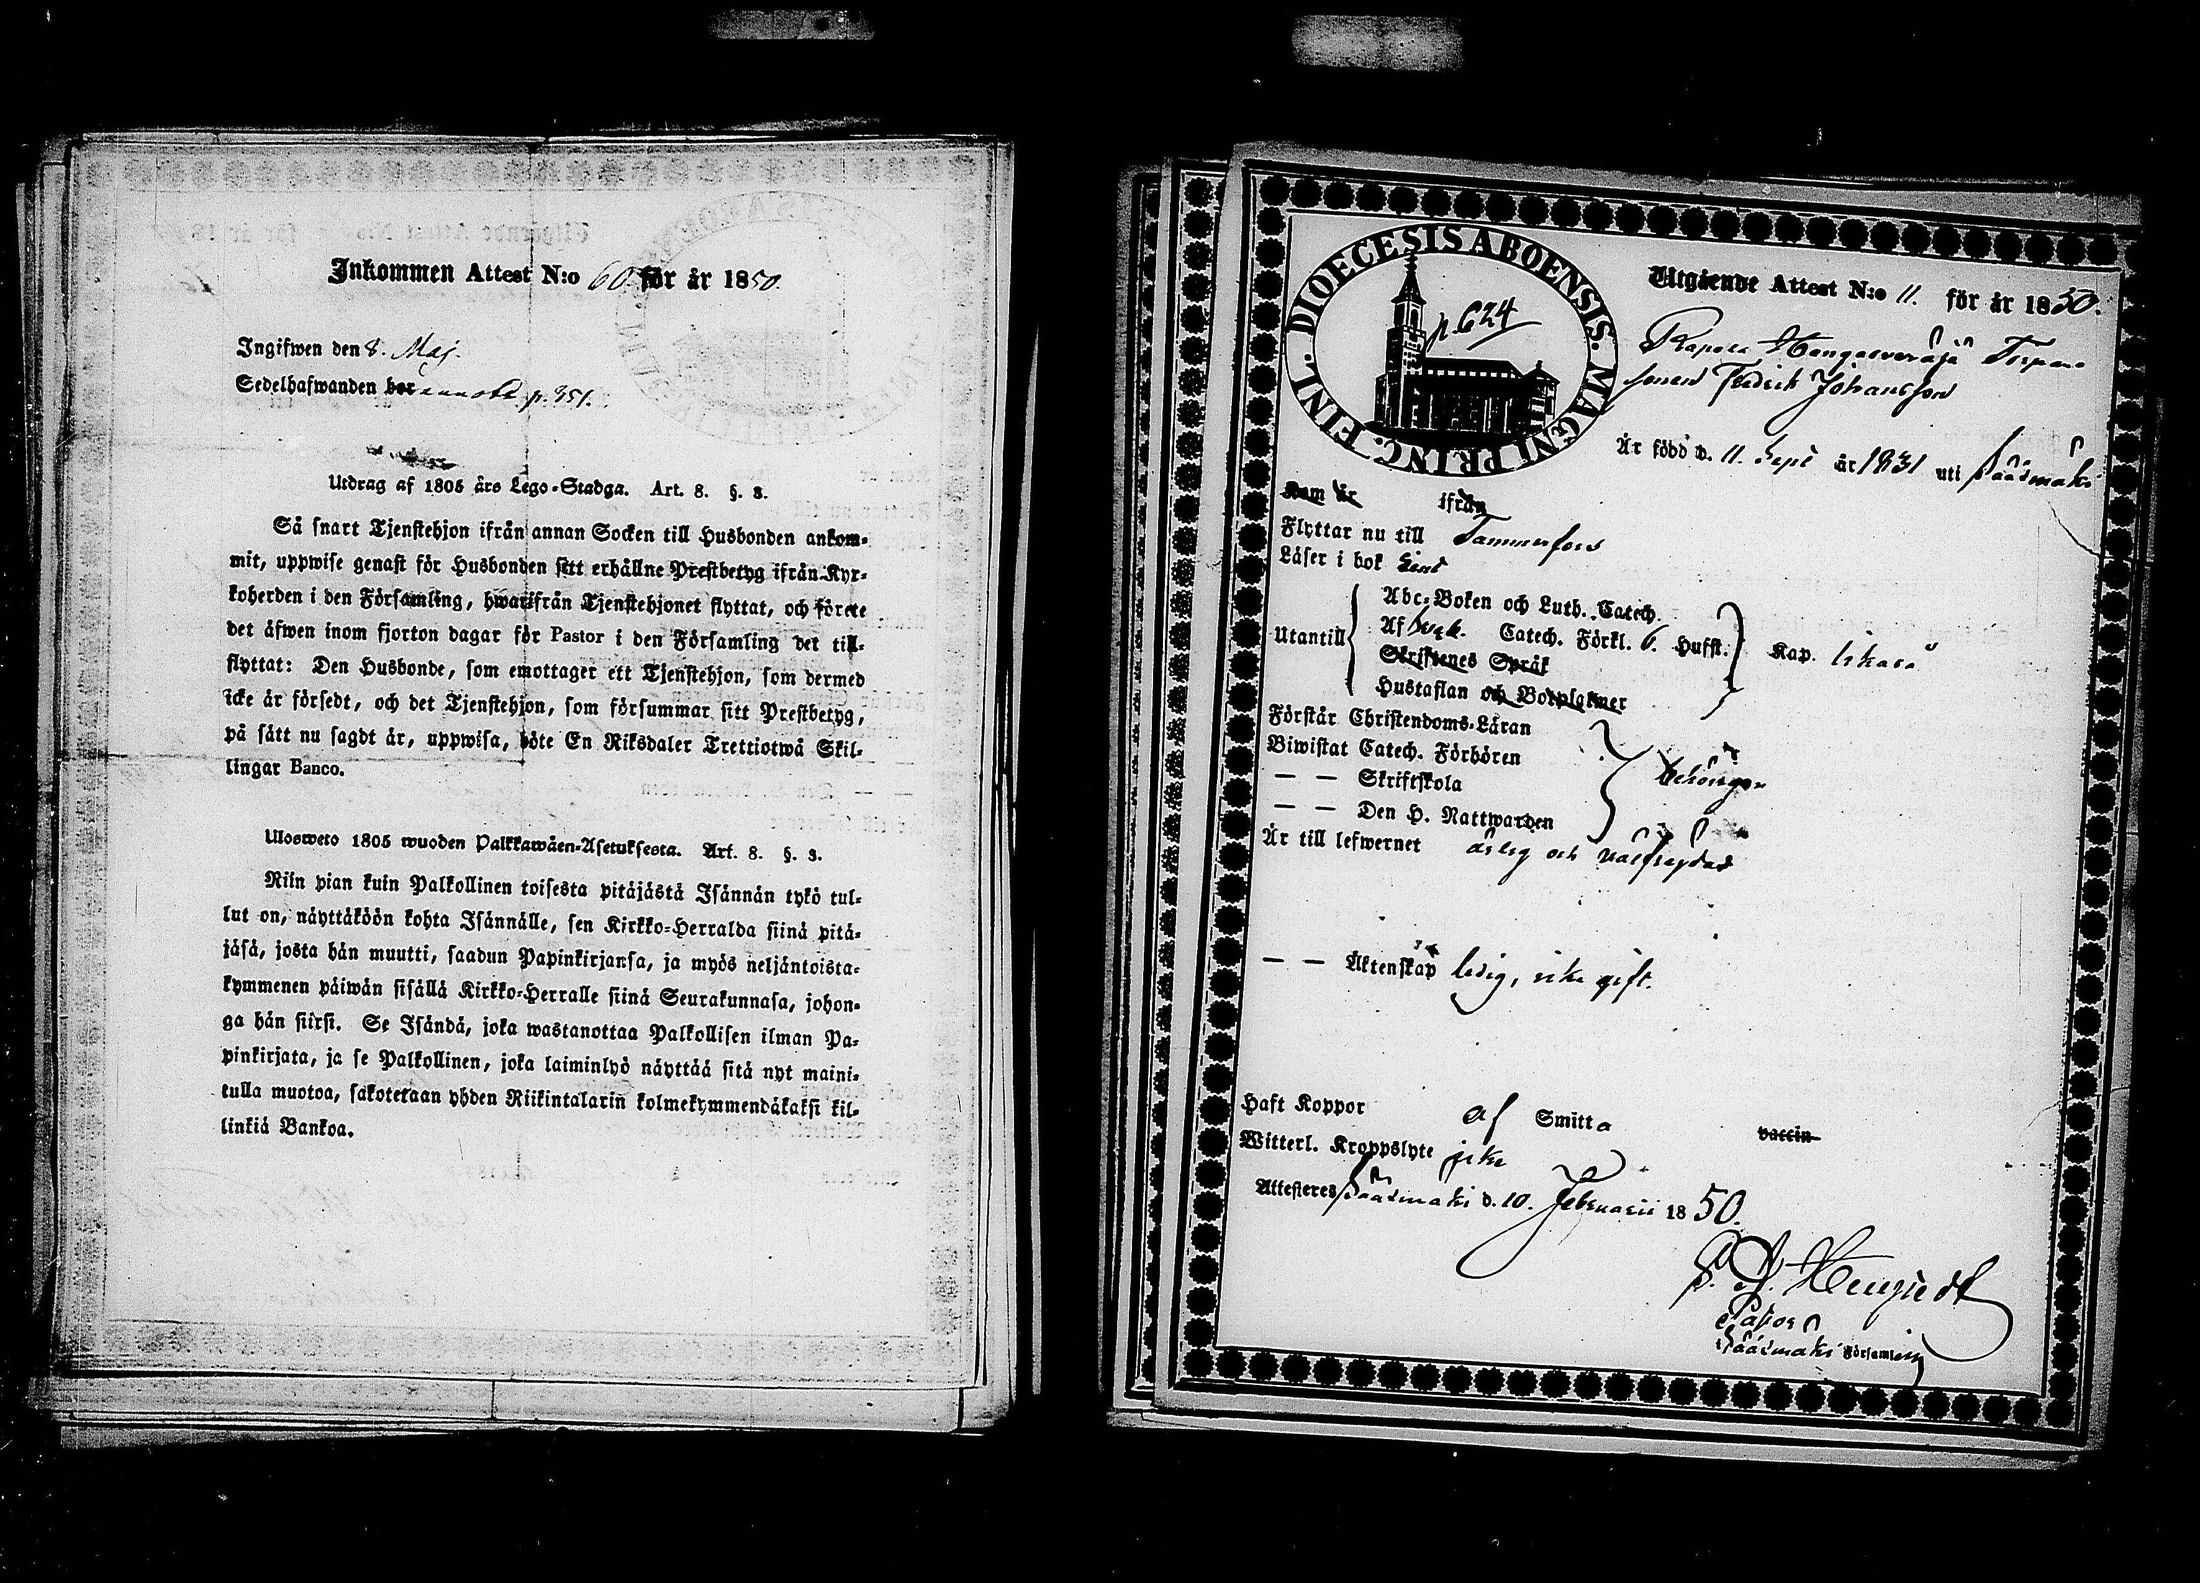 Inkommen Attest N:o 60. för år 1850.
Ingifwen den 8. Maj.
Sedelhafwanden bor annoterad p. 351.
Utdrag af 1805 års Lego-Stadga. Art. 8. §. 3.
Så snart Tjenstehjon ifrån annan Socken till Husbonden ankom-
mit, uppwise genast för Husbonden sitt erhållne Prestbetyg ifrån Kyr-
koherden i den Församling, hwarifrån Tjenstehjonet flyttat, och förete
det äfwen inom fjorton dagar för Pastor i den Församling det till-
flyttat: Den Husbonde, som emottager ett Tjenstehjon, som dermed
icke är försedt, och det Tjenstehjon, som försummar sitt Prestbetyg,
på sätt nu sagdt är, uppwisa, böte En Riksdaler Trettiotwå Skil-
lingar Banco.
Ulosweto 1805 wuoden Palkkawäen-Asetuksesta. Art. 8. §. 3.
Niin pian kuin Palkollinen toisesta pitäjästä Isännän tykö tul-
lut on, näyttäköön kohta Isännälle, sen Kirkko-Herralda siinä pitä-
jäsä, josta hän muutti, saadun Papinkirjansa, ja myös neljäntoista-
kymmenen päiwän sisällä Kirkko-Herralle siinä Seurakunnasa, johon-
ga hän siirsi. Se Isändä, joka wastanottaa Palkollisen ilman Pa-
pinkirjata, ja se Palkollinen, joka laiminlyö näyttää sitä nyt maini-
tulla muotoa, sakotetaan yhden Riikintalarin kolmekymmendäkaksi kil-
linkiä Bankoa.
DIOECESIS ABOENSIS. MAGNI PRINC. FINL.
p. 624
Utgående Attest N:o 11. för år 1850.
Rapola Hangasveräjä Torpare
sonen Fredrik Johansson
Är född d. 11. Sept år 1831 uti Sääxmäki
Kom år ifrån
Flyttar nu till Tammerfors
Läser i bok
Abc-Boken och Luth. Catech.
Utantill Af Catech. Förkl. 6. Hufst. Kap.
Skriftenes Språk
Hustaflan och Botpsalmer
Förstår Christendoms-Läran
Biwistat Catech. Förhören behörigen
— — Skriftskola
— — Den H. Nattwarden
Är till lefwernet ärlig och välfrejdad
— — Äktenskap ledig, icke gift.
Haft Koppor af Smitta vaccin
Witterl. Kroppslyte icke
Attesteres Sääxmäki d. 10. Februarii 1850.
Pastor
Sääxmäki Församling